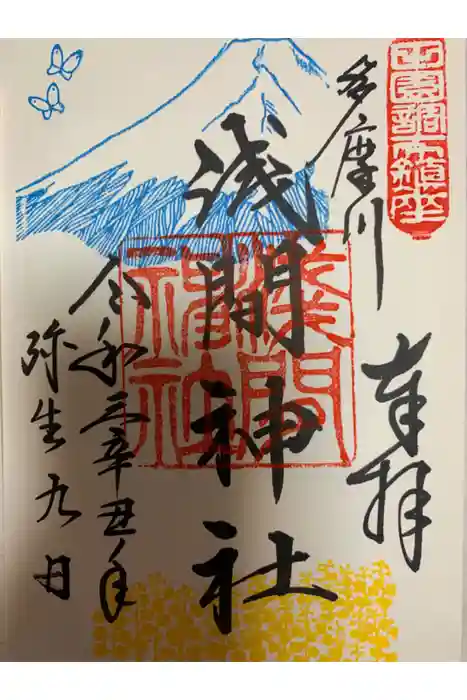 田園調布鎮座
多摩川
奉拝
浅間神社
浅間神社
令和三辛丑年
弥生九日